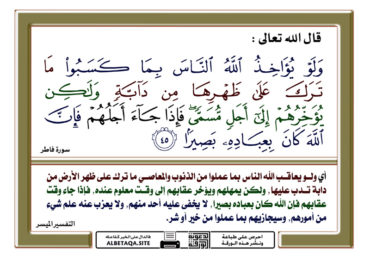 قال الله تعالى :
وَلَوْ يُؤَاخِذُ ٱللَّهُ ٱلنَّاسَ بِمَا كَسَبُوا۟ مَا
تَرَكَ عَلَىٰ ظَهْرِهَا مِن دَآبَّةٍ وَلَٰكِن
يُؤَخِّرُهُمْ إِلَىٰٓ أَجَلٍ مُّسَمًّى ۖ فَإِذَا جَآءَ أَجَلُهُمْ فَإِنَّ
ٱللَّهَ كَانَ بِعِبَادِهِۦ بَصِيرًۢا ٤٥
سورة فاطر
أي ولو يعاقب الله الناس بما عملوا من الذنوب والمعاصي ما ترك على ظهر الأرض من
دابة تدب عليها، ولكن يمهلهم ويؤخر عقابهم إلى وقت معلوم عنده، فإذا جاء وقت
عقابهم فإن الله كان بعباده بصيرا، لا يخفى عليه أحد منهم، ولا يعزب عنه علم شيء
من أمورهم، وسيجازيهم بما عملوا من خير أو شر.
التفسير الميسر
احرص على طباعة
ونشر هذه الورقة
فالدال على الخير كفاعله
ALBETAQA.SITE